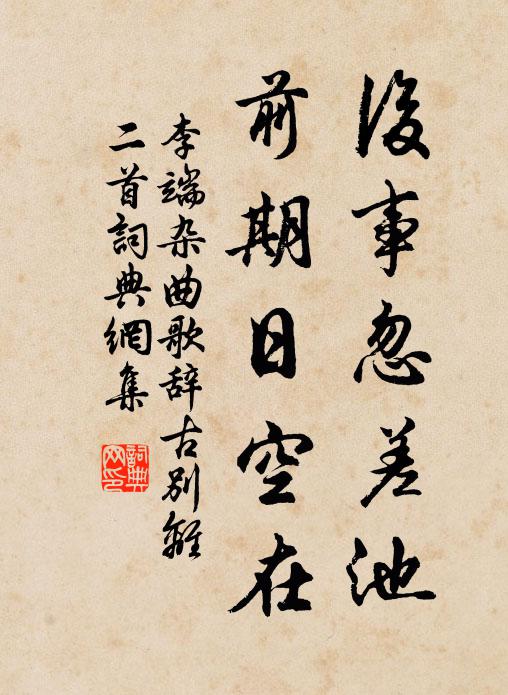 後事忽差池
前期日空在
李端杂曲歌辞古别離
二首詞典網集
詞典
网印